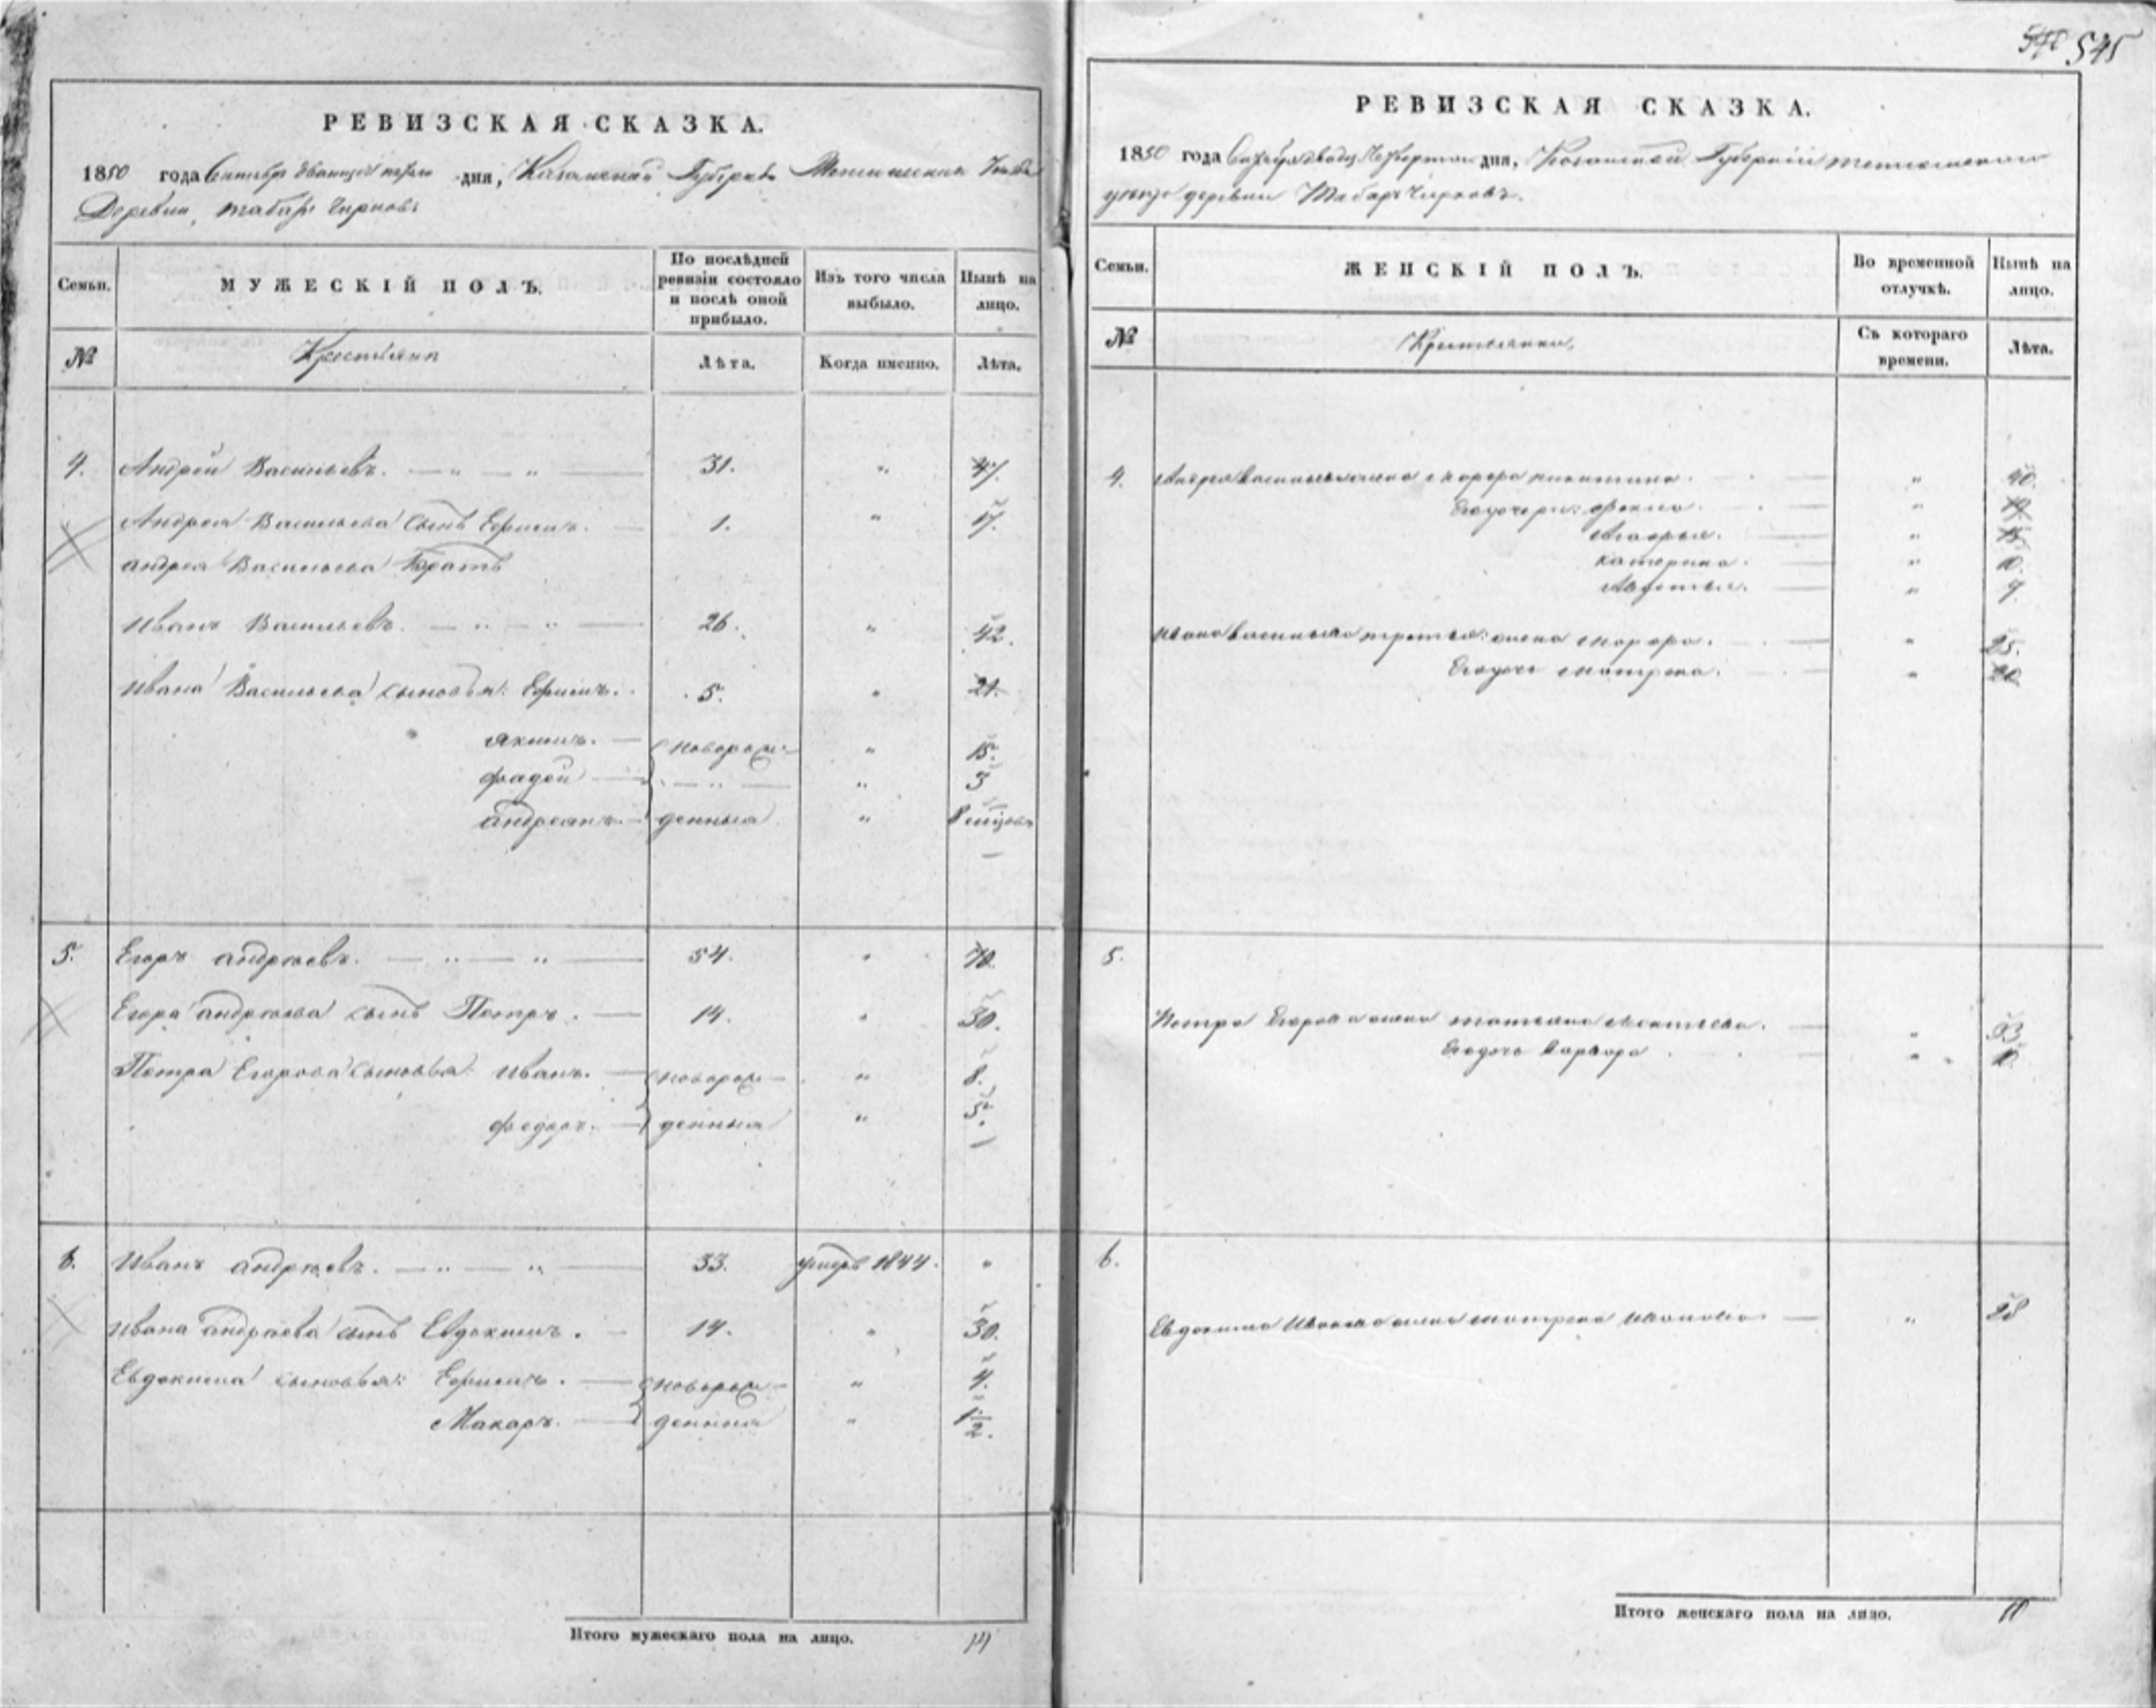 545
РЕВИЗСКАЯ СКАЗКА.
1850 года Сентября дня, Казанской Губернии Уезда
Деревни, табарь Чиркова
Семьи.
МУЖЕСКІЙ ПОЛЪ.
По послѣдней ревизіи состояло и послѣ оной прибыло.
Изъ того числа выбыло.
Нынѣ на лицо.
№
Крестьяне
Лѣта.
Когда именно.
Лѣта.
4. Андрей Васильевъ. — " — " — 31. " 47.
Андрея Васильева сынъ Ефимъ. — 1. " 17.
андрея Васильева Братъ
Иванъ Васильевъ. — " — " — 26. " 42.
Ивана Васильева сыновья: Ефимъ. 5. " 21.
Якимъ. — новорож- " 15.
фадей — " — " 5
андреянъ. — денныя " 8
5. Егоръ андреевъ. — " — " — 54. " 70.
Егора андреева сынъ Петръ. — 14. " 30.
Петра Егорова сыновья: Иванъ. — новорож- " 8.
федоръ. — денныя " 5.
6. Иванъ андреевъ. — " — " — 33. умеръ 1844. "
Ивана андреева сынъ Евдокимъ. — 14. " 30.
Евдокима сыновья: Ефимъ. — новорож- " 4.
Макаръ. — денныя " 1 1/2.
Итого мужескаго пола на лицо. 14
РЕВИЗСКАЯ СКАЗКА.
1850 года дня, Казанской Губерніи
уезда деревни Табарь Чиркова.
Семьи.
ЖЕНСКІЙ ПОЛЪ.
Во временной отлучкѣ.
Нынѣ на лицо.
№
Крестьянки,
Съ котораго времени.
Лѣта.
4. Андрея Васильева жена никитина. — " 40.
Его дочери: — " 19.
— " 15.
катерина. — " 10.
Авдотья. — " 7.
Ивана васильева третья жена — " 25.
Его дочь матрена. — " 20.
5.
Петра Егорова жена татьяна — " 33
Его дочь варвара " 10.
6.
Евдокима Иванова жена матрена — " 28
Итого женскаго пола на лицо. 10